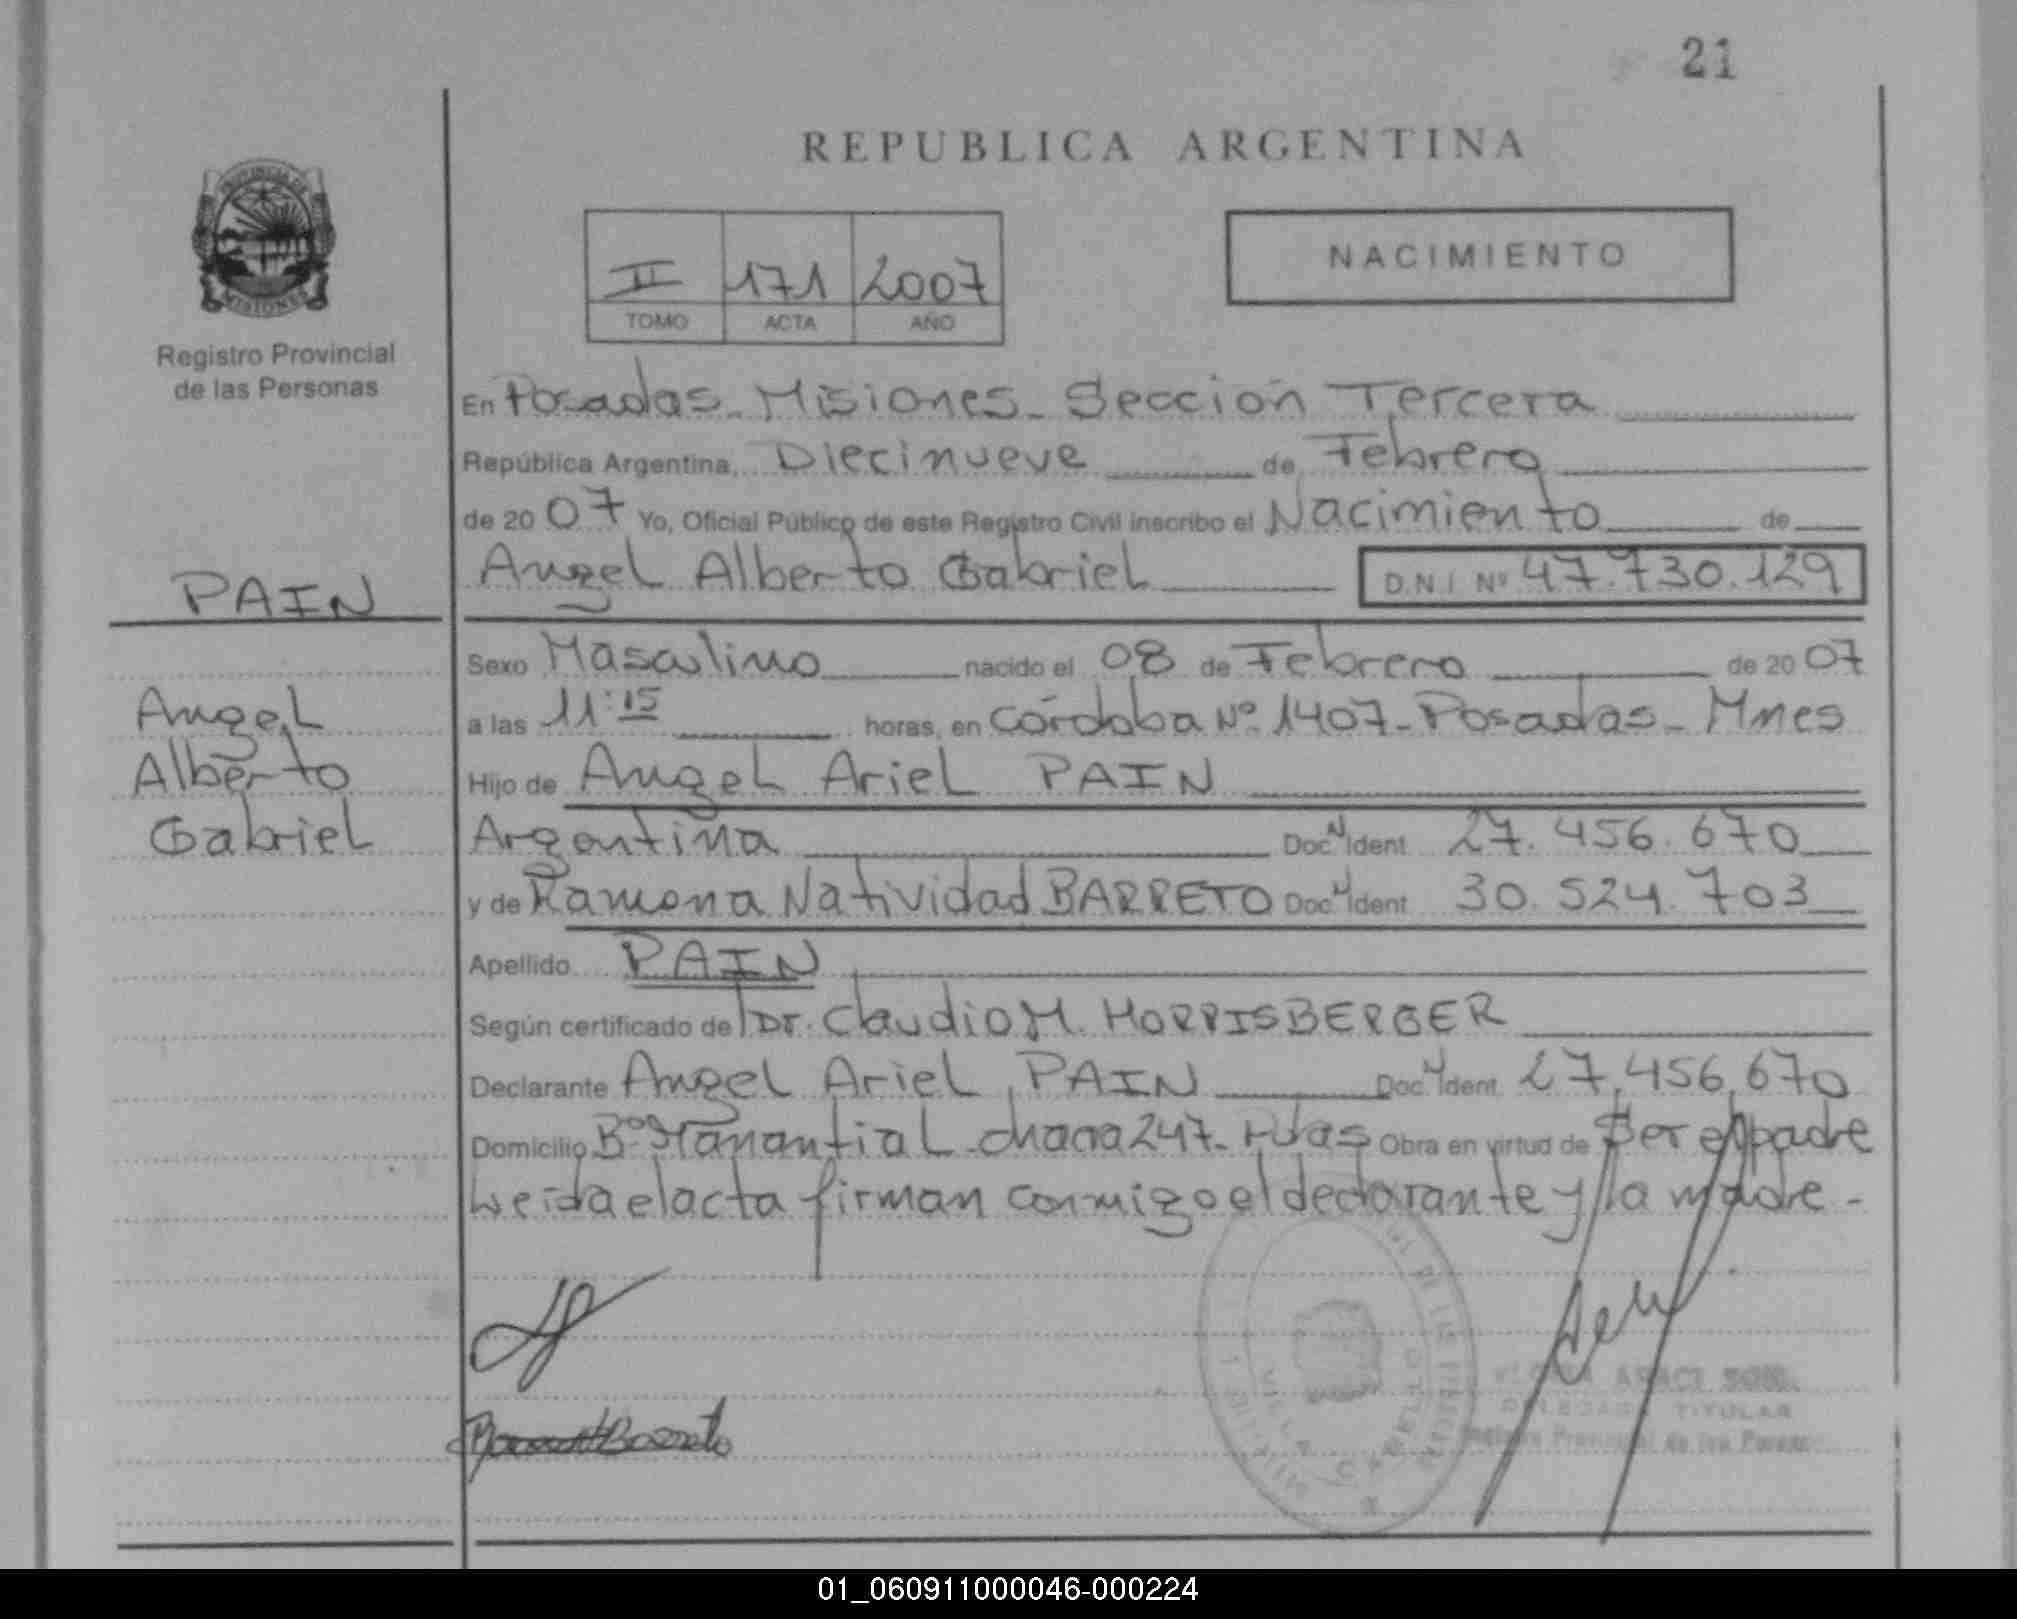 21
REPUBLICA ARGENTINA
PROVINCIA DE
MISIONES
Registro Provincial
de las Personas
II 171 2007
TOMO ACTA AÑO
NACIMIENTO
En Posadas - Misiones - Sección Tercera
República Argentina, Diecinueve de Febrero
de 20 07 Yo, Oficial Público de este Registro Civil inscribo el Nacimiento de
Angel Alberto Gabriel D.N.I Nº 47.730.129
PAIN
Angel
Alberto
Gabriel
Sexo Masculino nacido el 08 de Febrero de 20 07
a las 11:15 horas, en Córdoba Nº 1407 - Posadas - Mnes
Hijo de Angel Ariel PAIN
Argentina Doc N Ident 27.456.670
y de Ramona Natividad BARRETO Doc N Ident 30.524.703
Apellido PAIN
Según certificado de Dr. Claudio M. HORRISBERGER
Declarante Angel Ariel PAIN Doc N Ident 27,456,670
Domicilio Bº Manantial - chacra 247 - Pdas Obra en virtud de Ser el padre
Leida el acta firman conmigo el declarante y la madre -
Barreto
ARACI
TITULAR
Registro Provincial de las Personas
01_060911000046-000224